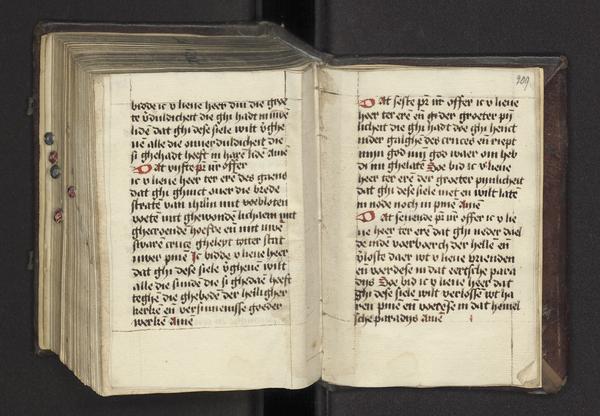 bidde ic v lieue heer din die groe
te v̄duldicheit die ghi hadt in uwē
lidē dat ghi dese siele wilt v̄ghe
uē alle die onuerduldicheit die
si ghehadt heeft in harē lidē Amē
Dat vijfte pr̄ nr̄ offer
ic v lieue heer ter erē des gaens
dat ghi ghinct ouer die brede
stratē van ihrlm mit verbloten
voetē mit ghewondē lichaem mit
ghecroende hoefde en mit uwē
swarē cruce ghelept totter stat
uwer pinē Ic bidde v lieue heer
dat ghi dese siele v̄gheuē wilt
alle die sunde die si ghedaē heeft
teghē die ghebodē der heiligher
kerkē en versumenisse goeder
werkē Amē
209
Dat seste pr̄ nr̄ offer ic v lieue
heer ter erē en̄ der groeter pij
licheit die ghi hadt doe ghi henct
ander galghe des cruces en̄ riept
mijn god mij god waer om heb
di mi ghelatē Soe bid ic v lieue
heer ter erē der groeter pinlicheit
dat ghi dese siele niet en wilt latē
in node noch in pinē Amē
Dat seuende pr̄ nr̄ offer ic v lie
ue heer ter erē dat ghi neder dael
de indē voerborch der hellē en̄
v̄loste daer wt v lieue vrienden
en̄ voerdese in dat eertsche para
dijs Soe bid ic v lieue heer dat
ghi dese siele wilt verlossē wt ha
ren pinē en̄ voertse in dat hemel
sche paradijs Amē